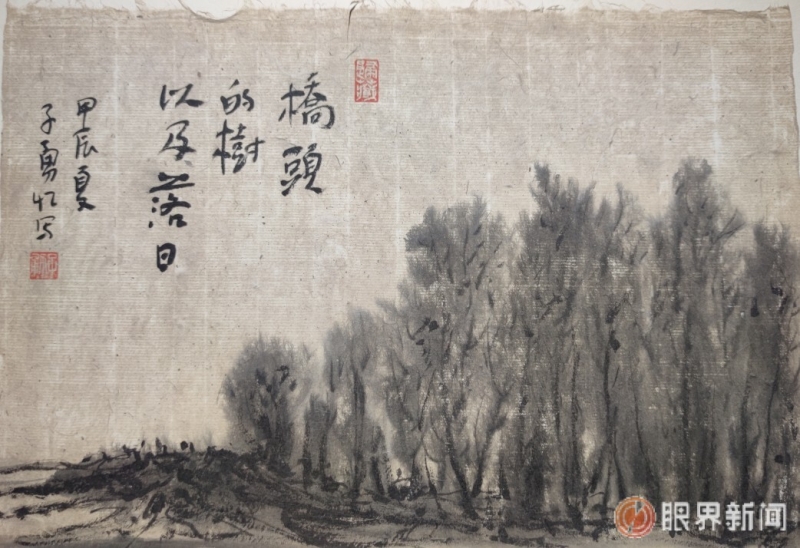 橋頭
的樹
以及落日
甲辰夏
子勇忆写
眼界新闻